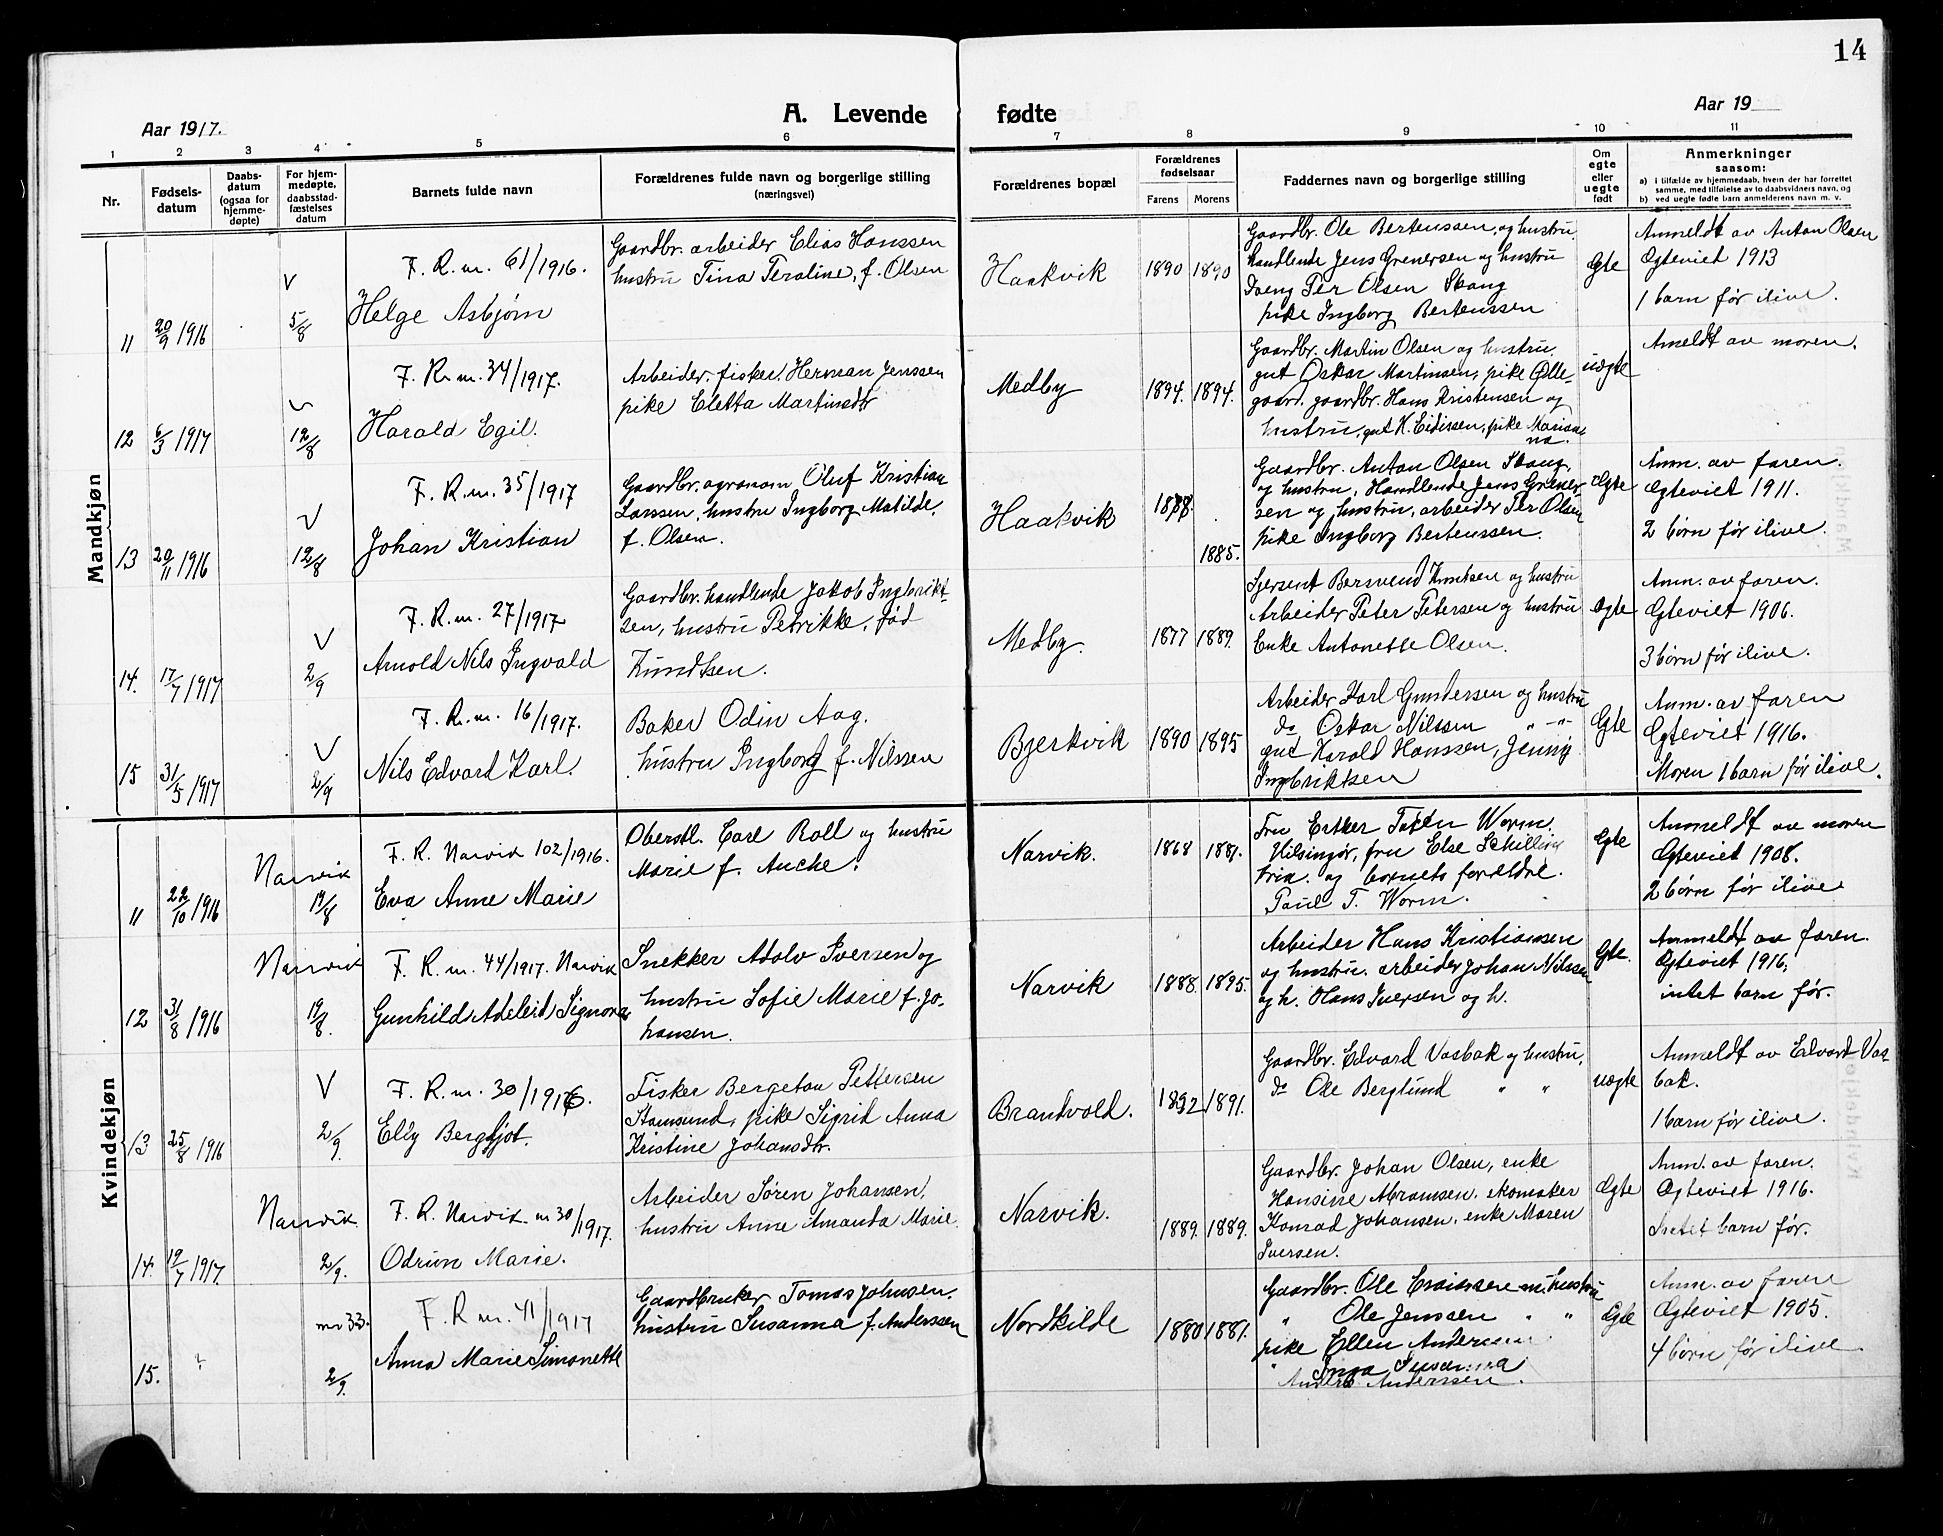 14
Aar 1917.
A. Levende fødte
Aar 19
1 2 3 4 5 6 7 8 9 10 11
Nr.
Fødsels-
datum
Daabs-
datum
(ogsaa for
hjemme-
døpte)
For hjem-
medøpte,
daabsstad-
fæstelses
datum
Barnets fulde navn
Forældrenes fulde navn og borgerlige stilling
(næringsvei)
Forældrenes bopæl
Forældrenes
fødselsaar
Farens Morens
Faddernes navn og borgerlige stilling
Om
egte
eller
uegte
født
Anmerkninger
saasom:
a) i tilfælde av hjemmedaab, hvem der har forrettet
samme, med tilføielse av to daabsvidners navn, og
b) ved uegte fødte barn anmelderens navn m. v.
Mandkjøn
11 20/9 1916
V 5/8
F. R. nr. 61/1916.
Helge Asbjørn
Gaardbr. arbeider Elias Hanssen
hustru Tina Teraline, f. Olsen
Haakvik
1890 1890
Gaardbr. Ole Bertenssen, og hustru,
handlende Jens Grenersen og hustru
Per Olsen Skang
pike Ingborg Bertenssen
Ægte
Anmeldt av Anton Olsen
Ægteviet 1913
1 barn før ilive.
12 6/3 1917
12/8
F. R. nr. 34/1917.
Harald Egil.
Arbeider, fisker, Herman Jenssen
pike Eletta Martinsdtr
Medby
1894. 1894.
Gaardbr. Martin Olsen og hustru.
gut Oskar Martinsen, pike Olle-
gaard. gaardbr. Hans Kristensen og
hustru, gut K. Eidissen, pike Marian-
na.
uægte
Ameldt av moren.
13 20/11 1916
V 12/8
F. R. nr. 35/1917
Johan Kristian
Gaardbr. agronom Oluf Kristian
Larssen, hustru Ingborg Matilde,
f. Olsen.
Haakvik
1888. 1885.
Gaardbr. Anton Olsen Skang,
og hustru, Handlende Jens Grener-
sen og hustru, arbeider Per Olsen
pike Ingborg Bertenssen.
Ægte
Anm. av faren.
Ægteviet 1911.
2 børn før ilive.
14. 17/7 1917
V 2/9
F. R. nr. 27/1917
Arnold Nils Ingvald
Gaardbr. handlende Jakob Ingbrikt-
sen, hustru Petrikke, fød
Knudtsen.
Medby.
1877 1889.
Sersent Bersvend Knutsen og hustru
Arbeider Peter Petersen og hustru
Enke Antonette Olsen.
Ægte
Anm. av faren.
Ægteviet 1906.
3 børn før ilive.
15 31/5 1917
V 2/9
F. R. nr. 16/1917.
Nils Edvard Karl.
Baker Odin Aag.
hustru Ingborg f. Nilssen
Bjerkvik
1890 1895
Arbeider Karl Gundersen og hustru
do Oskar Nilssen " - "
gut Harald Hanssen, Jenny
Ingbriktsen
Ægte
Anm. av faren
Ægteviet 1916.
Moren 1 barn før ilive.
Kvindekjøn
11 22/10 1916
Narvik 19/8
F. R. Narvik 102/1916.
Eva Anne Marie
Oberstl. Carl Roll og hustru
Marie f. Anche.
Narvik.
1868 1881.
Fru Esther Worm.
Hilsingør, fru Else Schilling
og barnets forældre.
Paul T. Worm.
Ægte
Anmeldt av moren
Ægteviet 1908.
2 børn før ilive
12 31/8 1916
Narvik 19/8.
F. R. nr. 44/1917. Narvik
Gunhild Adeleid Signora
Snekker Adolv Iversen og
hustru Sofie Marie f. Jo-
hansen.
Narvik
1888. 1895.
Arbeider Hans Kristianssen
og hustru. arbeider Johan Nilssen
og h. Hans Iversen og h.
Ægte.
Anmeldt av faren.
Ægteviet 1916,
intet barn før.
13 25/8 1916
V 2/9.
F. R. nr. 30/1916.
Elly Bergljot.
Fisker Bergeton Pettersen
Stamsund, pike Sigrid Anna
Kristine Johansdtr.
Brandvold.
1892 1891.
Gaardbr. Edvard Vasbak og hustru,
do Ole Berglund " "
uægte
Anmeldt av Edvard Vas-
bak.
1 barn før ilive.
14. 19/7 1917
Narvik. 2/9.
F. R. Narvik nr 30/1917.
Odrun Marie.
Arbeider Søren Johansen,
hustru Anne Amanda Marie.
Narvik.
1889. 1889.
Gaardbr. Johan Olsen, enke
Hansine Abramsen. skomaker
Konrad Johansen, enke Maren
Iversen.
Ægte
Anm. av faren.
Ægteviet 1916.
Intet barn før.
15.
nr 33. 2/9.
F. R. nr. 41/1917
Anna Marie Simonette
Gaardbruker Tomas Johnsen.
hustru Susanna f. Anderssen
Nordkilde
1880 1881.
Gaardbr. Ole m. hustru
" Ole Jenssen " "
pike Ellen Andersen
" Inga Susanna
Anders Anderssen.
Ægte
Anm. av faren
Ægteviet 1905.
4 børn før ilive.